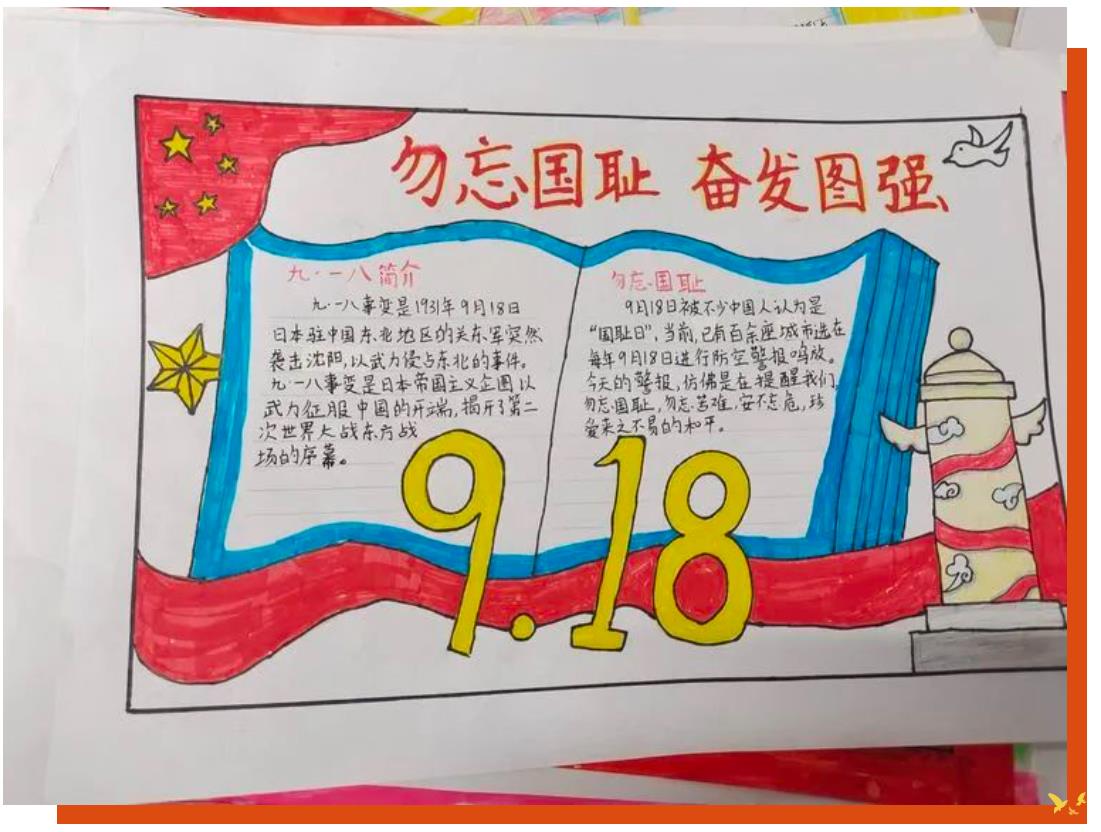 勿忘国耻 奋发图强
九·一八简介
九·一八事变是1931年9月18日
日本驻中国东北地区的关东军突然
袭击沈阳,以武力侵占东北的事件。
九·一八事变是日本帝国主义企图以
武力征服中国的开端,揭开了第二
次世界大战东方战
场的序幕。
勿忘国耻
9月18日被不少中国人认为是
“国耻日”,当前,已有百余座城市选在
每年9月18日进行防空警报鸣放。
今天的警报,仿佛是在提醒我们,
勿忘国耻,勿忘苦难,安不忘危,珍
爱来之不易的和平。
9.18